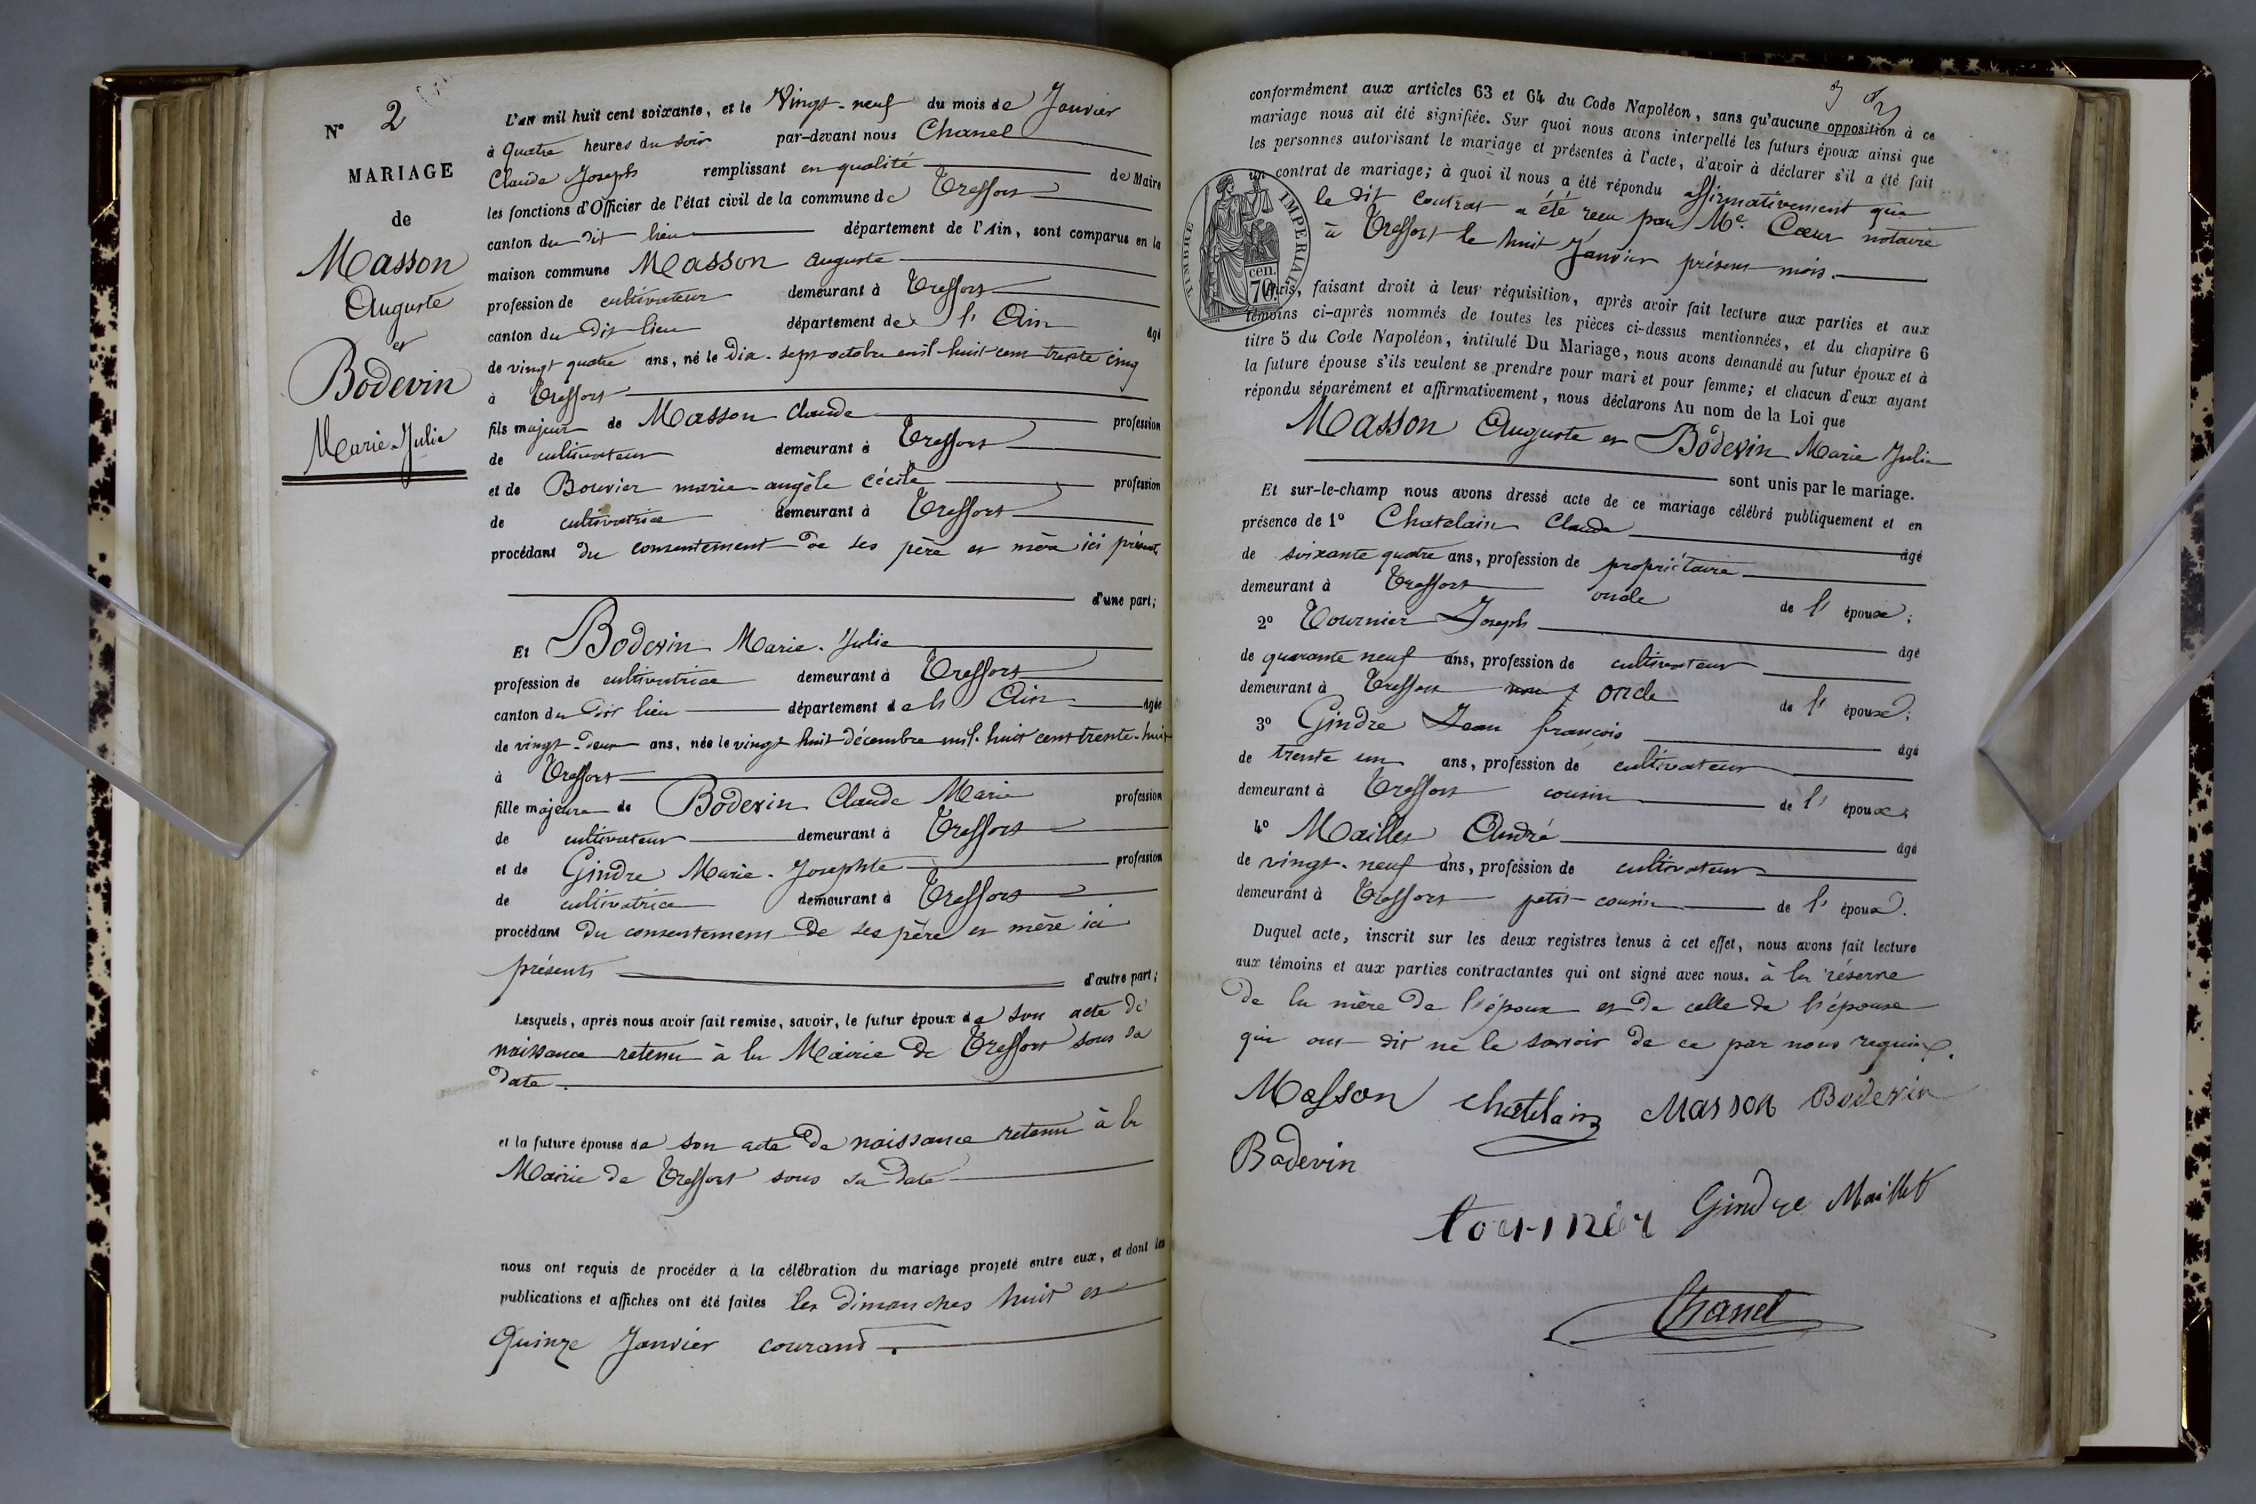 N° 2
MARIAGE
de
Masson
Auguste
et
Bodevin
Marie-Julie
L'an mil huit cent soixante, et le Vingt-neuf du mois de Janvier
à Quatre heures du soir par-devant nous Chanel
Claude Joseph remplissant en qualité de Maire
les fonctions d'Officier de l'état civil de la commune de Treffort
canton du dit lieu département de l'Ain, sont comparus en la
maison commune Masson Auguste
profession de cultivateur demeurant à Treffort
canton du dit lieu département de l'Ain âgé
de vingt quatre ans, né le Dix-sept octobre mil huit cent trente cinq
à Treffort
fils majeur de Masson Claude profession
de cultivateur demeurant à Treffort
et de Bouvier marie-angèle Cécile profession
de cultivatrice demeurant à Treffort
procédant du consentement de ses père et mère ici présents
d'une part;
Et Bodevin Marie-Julie
profession de cultivatrice demeurant à Treffort
canton du dit lieu département de l'Ain âgée
de vingt-deux ans, née le vingt huit décembre mil huit cent trente-huit
à Treffort
fille majeure de Bodevin Claude Marie profession
de cultivateur demeurant à Treffort
et de Gindre Marie-Josephte profession
de cultivatrice demeurant à Treffort
procédant du consentement de ses père et mère ici
présents d'autre part;
Lesquels, après nous avoir fait remise, savoir, le futur époux de son acte de
naissance retenu à la Mairie de Treffort sous sa
date.
et la future épouse de son acte de naissance retenu à la
Mairie de Treffort sous sa date
nous ont requis de procéder à la célébration du mariage projeté entre eux, et dont les
publications et affiches ont été faites les dimanches huit et
Quinze Janvier courant.
3
conformément aux articles 63 et 64 du Code Napoléon, sans qu'aucune opposition à ce
mariage nous ait été signifiée. Sur quoi nous avons interpellé les futurs époux ainsi que
les personnes autorisant le mariage et présentes à l'acte, d'avoir à déclarer s'il a été fait
un contrat de mariage; à quoi il nous a été répondu affirmativement que
le dit contrat a été reçu par Me. Cœur notaire
à Treffort le huit Janvier présent mois.
TIMBRE IMPERIAL
70 cen.
Puis, faisant droit à leur réquisition, après avoir fait lecture aux parties et aux
témoins ci-après nommés de toutes les pièces ci-dessus mentionnées, et du chapitre 6
titre 5 du Code Napoléon, intitulé Du Mariage, nous avons demandé au futur époux et à
la future épouse s'ils veulent se prendre pour mari et pour femme; et chacun d'eux ayant
répondu séparément et affirmativement, nous déclarons Au nom de la Loi que
Masson Auguste et Bodevin Marie Julie
sont unis par le mariage.
Et sur-le-champ nous avons dressé acte de ce mariage célébré publiquement et en
présence de 1° Chatelain Claude âgé
de soixante quatre ans, profession de propriétaire
demeurant à Treffort oncle de l'épouse;
2° Tournier Joseph âgé
de quarante neuf ans, profession de cultivateur
demeurant à Treffort oncle de l'épouse;
3° Gindre Jean françois âgé
de trente un ans, profession de cultivateur
demeurant à Treffort cousin de l'épouse;
4° Maillet André âgé
de vingt-neuf ans, profession de cultivateur
demeurant à Treffort petit-cousin de l'époux.
Duquel acte, inscrit sur les deux registres tenus à cet effet, nous avons fait lecture
aux témoins et aux parties contractantes qui ont signé avec nous. à la réserve
de la mère de l'époux et de celle de l'épouse
qui ont dit ne le savoir de ce par nous requises.
Masson chatelain Masson Bodevin
Bodevin
tournier Gindre Maillet
Chanel